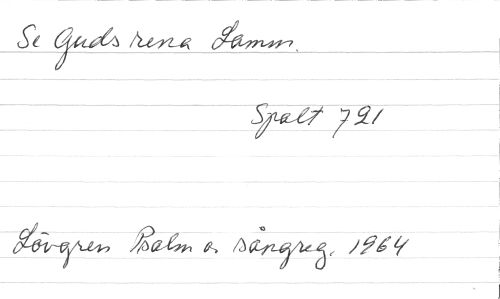 Se Guds rena Lamm.
Spalt 721
Lövgren Psalm o. sångreg. 1964